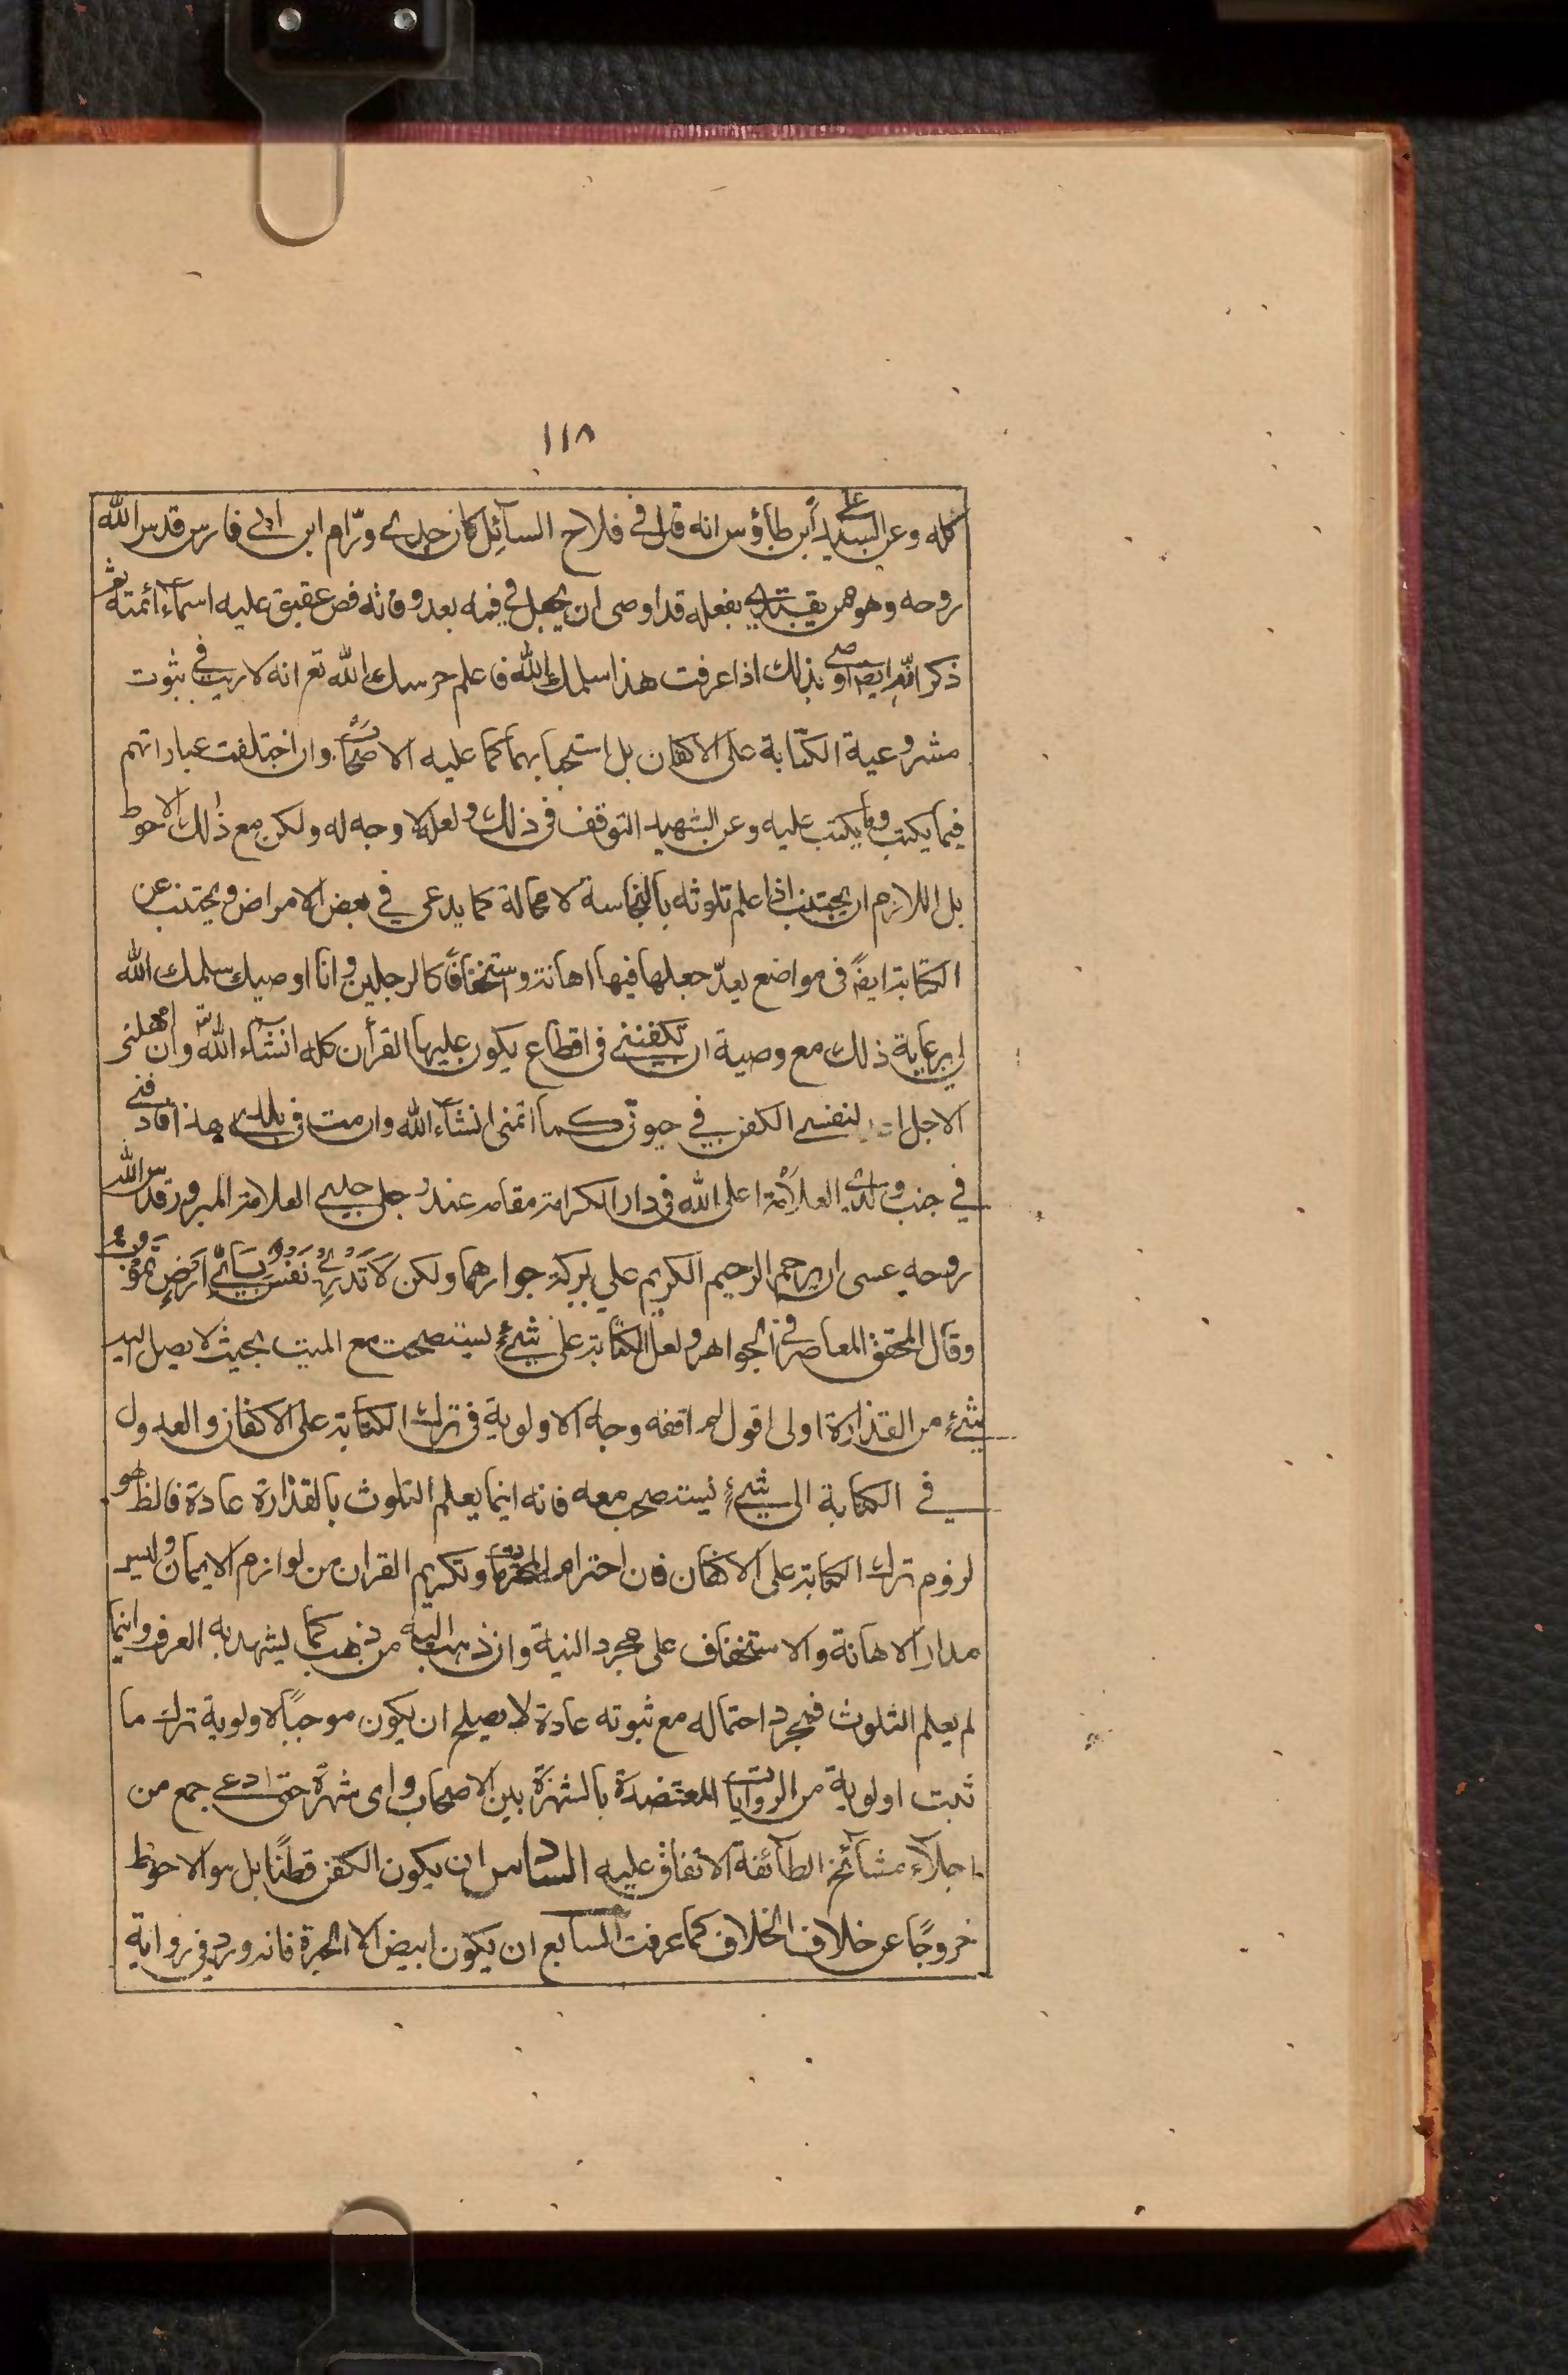 ١١٨
كله وعن السيد علي ابن طاؤس انه قال في فلاح السآئل كان جدي ورّام ابن ابي فارس قدس الله
روحه وهو ممن يقتدي بفعله قد اوصى ان يجعل في فمه بعد وفاته فص عقيق عليه اسماء ائمته
ذكر انه ايضا اوصى بذلك اذا عرفت هذا سلمك الله فاعلم حرسك الله تع انه لا ريب في ثبوت
مشروعية الكتابة على الاكفان بل استحبابهما كما عليه الاصحاب وان اختلفت عباراتهم
فيما يكتب وما يكتب عليه وعن الشهيد التوقف في ذلك ولعله لا وجه له ولكن مع ذلك الاحوط
بل اللازم ان يجتنب اذا علم تلوثه بالنجاسة لا محالة كما يدعى في بعض الامراض ويجتنب عن
الكتابة ايضً في مواضع يعدّ جعلها فيها اهانة واستخفافًا كالرجلين وانا اوصيك سلمك الله
لي برعاية ذلك مع وصية ان تكفنني في اقطاع يكون عليها القرأن كله انشاء الله وان امهلني
الاجل لنفسي الكفن في حيوتي كما اتمنى انشاء الله وان مت في بلدي هذا فادفني
في جنب والدي العلامة اعلى الله في دار الكرامة مقامه عند رجلي جدي العلامة المبرور قدس الله
روحه عسى ان يرحم الرحيم الكريم علي ببركة جوارهما ولكن لَا تَدْرِيْ نَفْسٌ بِاَيِّ اَرْضٍ تَمُوْتُ
وقال المحقق المعاصر في الجواهر ولعل الكتابة على شيءٍ يستصحب مع الميت بحيث لا يصل اليه
شيءٌ من القذارة اولى اقول لم افقه وجه الاولوية في ترك الكتابة على الاكفان والعدول
في الكتابة الى شيءٍ يستصحب معه فانه اينما يعلم التلوث بالقذارة عادة فالظ هو
لزوم ترك الكتابة على الاكفان فان احترام المحترمات وتكريم القران من لوازم الايمان وليس
مدار الاهانة والاستخفاف على مجرد النية وان ذهب اليه من ذهب كما يشهد به العرف واينما
لم يعلم التلوث فمجرد احتماله مع ثبوته عادة لا يصلح ان يكون موجبًا لاولوية ترك ما
ثبت اولوية من الروايات المعتضدة بالشهرة بين الاصحاب واى شهرة حتى ادعى جمع من
اجلآء مشآئخ الطآئفة الاتفاق عليه السادس ان يكون الكفن قطنًا بل هو الاحوط
خروجًا عن خلاف الخلاف كما عرفت السابع ان يكون ابيض الا الحبرة فانه ورد في رواية